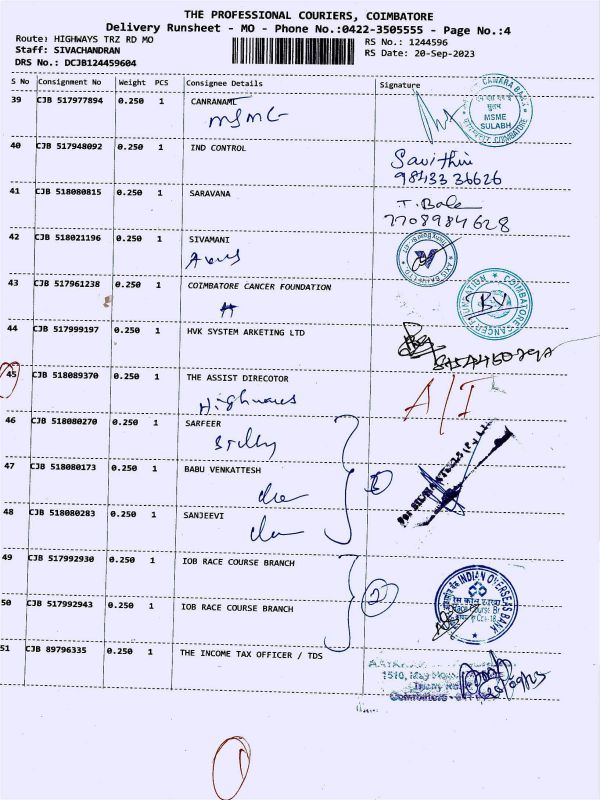 THE PROFESSIONAL COURIERS, COIMBATORE
Delivery Runsheet - MO - Phone No.:0422-3505555 - Page No.:4
Route: HIGHWAYS TRZ RD MO
RS No.: 1244596
Staff: SIVACHANDRAN
RS Date: 20-Sep-2023
DRS No.: DCJB124459604
S No Consignment No Weight PCS Consignee Details Signature
39 CJB 517977894 0.250 1 CANRANAML
MSME
CANARA BANK
MSME
SULABH
40 CJB 517948092 0.250 1 IND CONTROL
Savithri
98433 36626
41 CJB 518080815 0.250 1 SARAVANA
T. Bala
7708984628
42 CJB 518021196 0.250 1 SIVAMANI
43 CJB 517961238 0.250 1 COIMBATORE CANCER FOUNDATION
COIMBATORE CANCER FOUNDATION
44 CJB 517999197 0.250 1 HVK SYSTEM ARKETING LTD
45 CJB 518089370 0.250 1 THE ASSIST DIRECOTOR
Highways
A/I
46 CJB 518080270 0.250 1 SARFEER
47 CJB 518080173 0.250 1 BABU VENKATTESH
48 CJB 518080283 0.250 1 SANJEEVI
49 CJB 517992930 0.250 1 IOB RACE COURSE BRANCH
2
INDIAN OVERSEAS BANK
50 CJB 517992943 0.250 1 IOB RACE COURSE BRANCH
51 CJB 89796335 0.250 1 THE INCOME TAX OFFICER / TDS
20/09/23